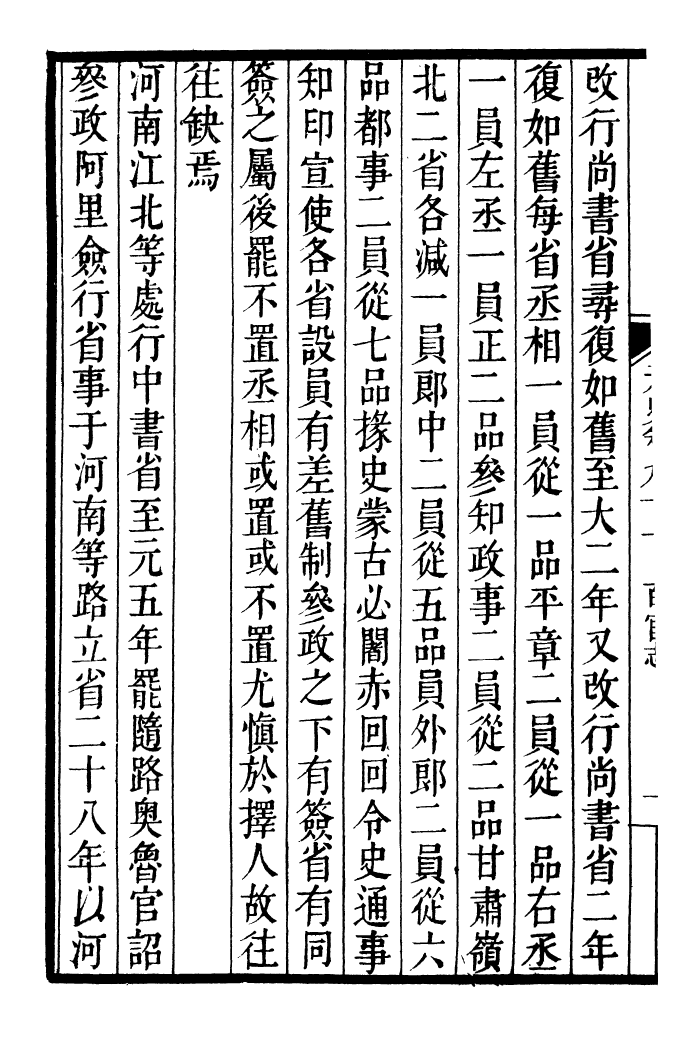 改行尚書省尋復如舊至大二年又改行尚書省二年
復如舊每省丞相一員從一品平章二員從一品右丞
一員左丞一員正二品參知政事二員從二品甘肅嶺
北二省各減一員郎中二員從五品員外郎二員從六
品都事二員從七品掾史蒙古必闍赤回回令史通事
知印宣使各省設員有差舊制參政之下有簽省有同
簽之屬後罷不置丞相或置或不置尤慎於擇人故往
往缺焉
河南江北等處行中書省至元五年罷隨路奧魯官詔
參政阿里僉行省事于河南等路立省二十八年以河